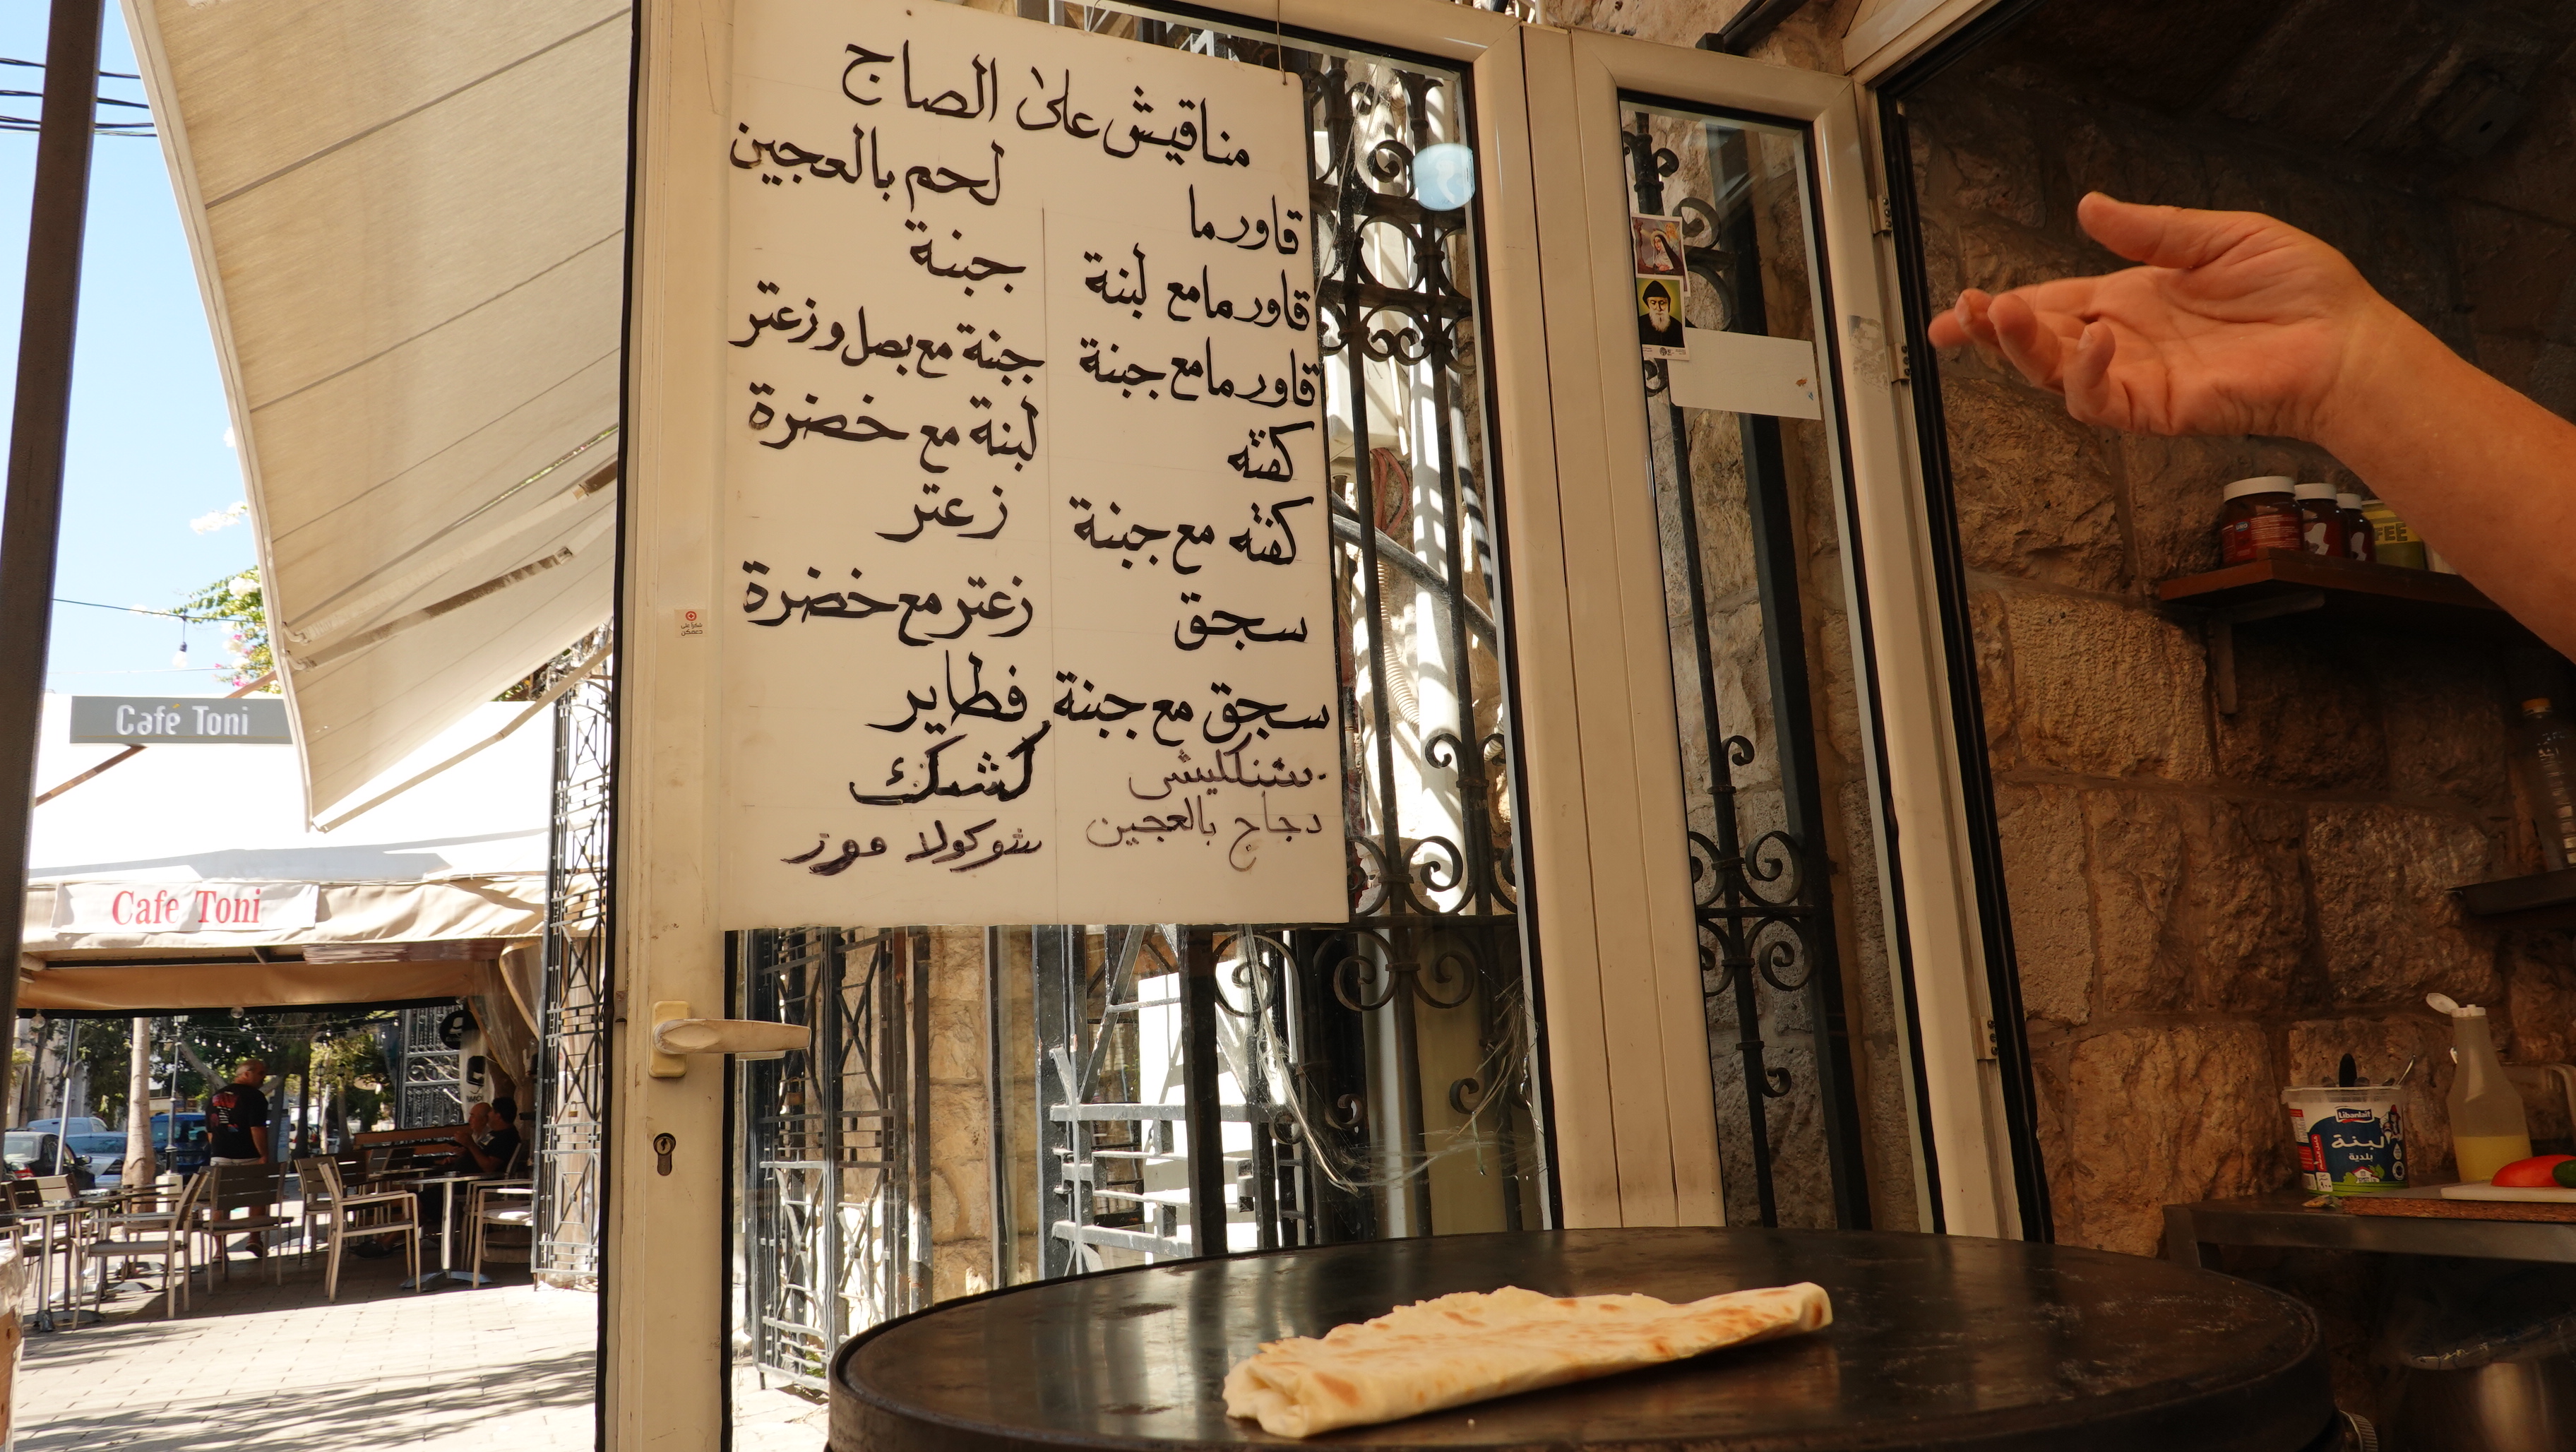 مناقيش على الصاج
قاورما
قاورما مع لبنة
قاورما مع جبنة
كفته
كفته مع جبنة
سجق
سجق مع جبنة
شنكليش
دجاج بالعجين
لحم بالعجين
جبنة
جبنة مع بصل وزعتر
لبنة مع خضرة
زعتر
زعتر مع خضرة
فطاير
كشك
شوكولا موز
Café Toni
Cafe Toni
لبنة
بلدية